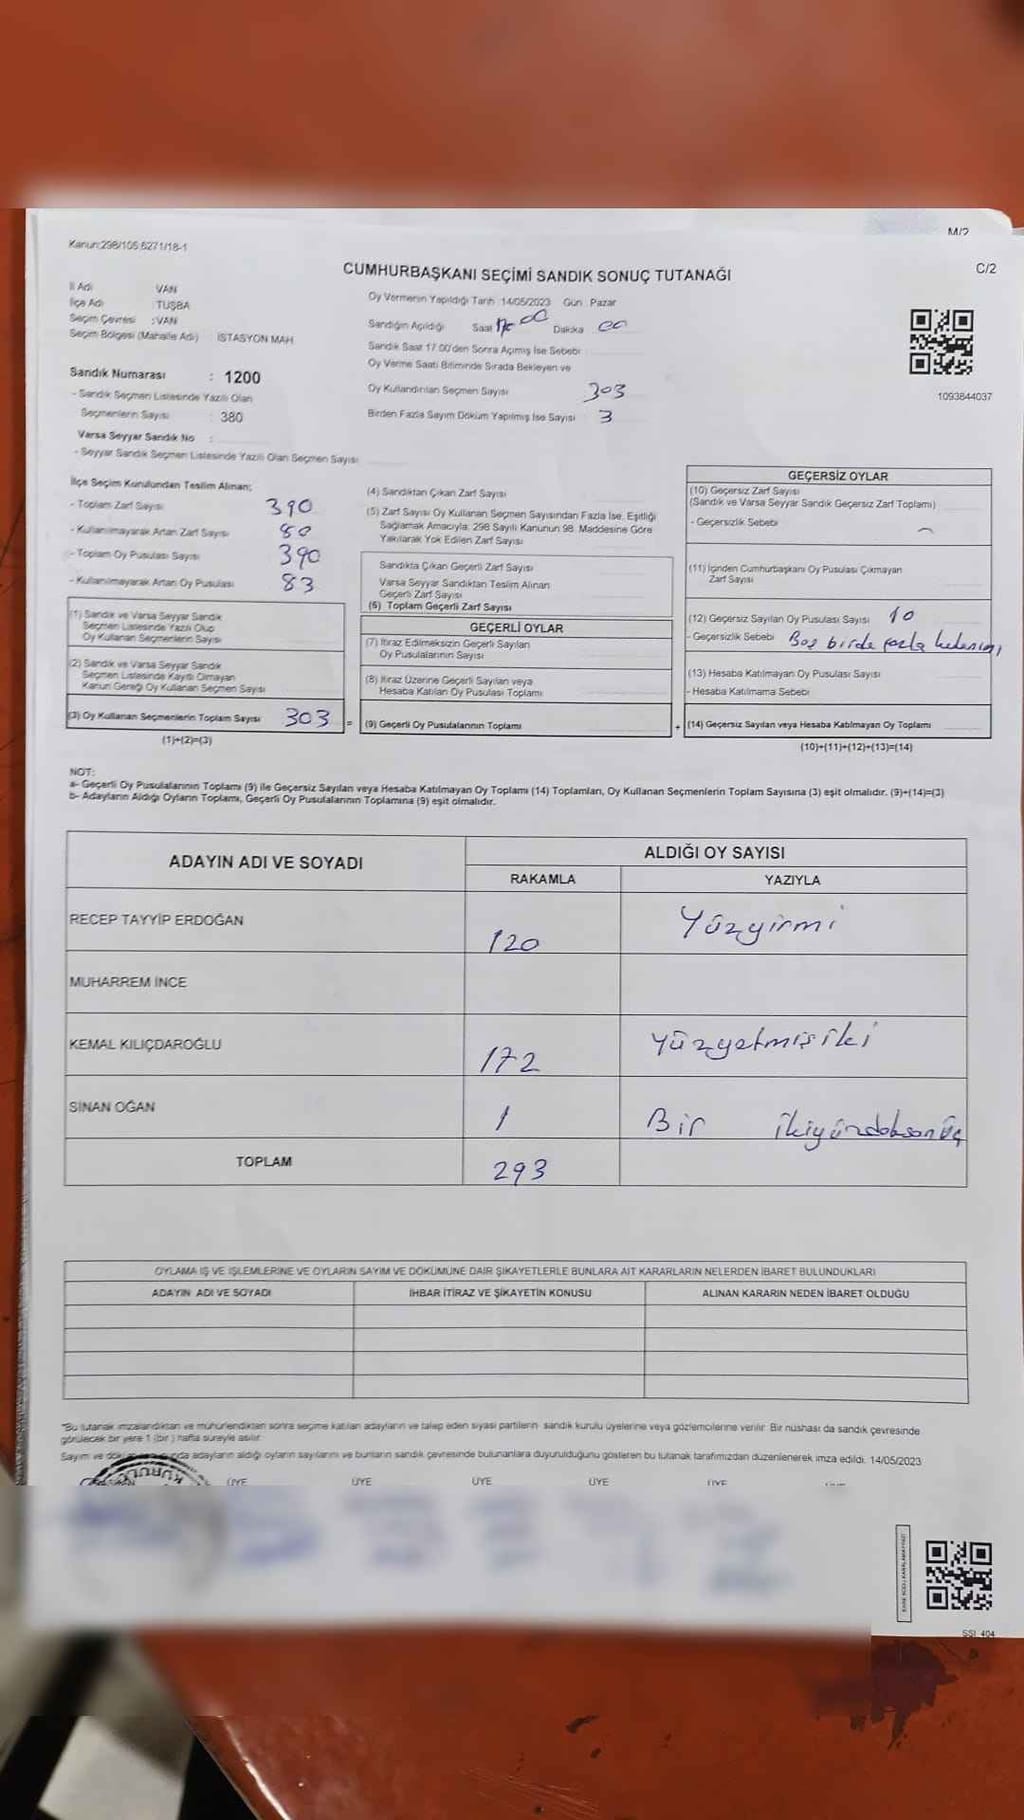 M/2
Kanun:298/105 6271/18-1
C/2
CUMHURBAŞKANI SEÇİMİ SANDIK SONUÇ TUTANAĞI
İl Adı VAN
İlçe Adı TUŞBA
Seçim Çevresi :VAN
Seçim Bölgesi (Mahalle Adı) İSTASYON MAH
Oy Vermenin Yapıldığı Tarih :14/05/2023 Gün : Pazar
Sandığın Açıldığı Saat 00 Dakika 00
Sandık Saat 17.00'den Sonra Açılmış İse Sebebi
Oy Verme Saati Bitiminde Sırada Bekleyen ve
Oy Kullandırılan Seçmen Sayısı 303
Birden Fazla Sayım Döküm Yapılmış İse Sayısı 3
1093844037
Sandık Numarası : 1200
- Sandık Seçmen Listesinde Yazılı Olan
Seçmenlerin Sayısı : 380
Varsa Seyyar Sandık No :
- Seyyar Sandık Seçmen Listesinde Yazılı Olan Seçmen Sayısı
İlçe Seçim Kurulundan Teslim Alınan;
- Toplam Zarf Sayısı 390
- Kullanılmayarak Artan Zarf Sayısı 80
- Toplam Oy Pusulası Sayısı 390
- Kullanılmayarak Artan Oy Pusulası 83
(1) Sandık ve Varsa Seyyar Sandık
Seçmen Listesinde Yazılı Olup
Oy Kullanan Seçmenlerin Sayısı
(2) Sandık ve Varsa Seyyar Sandık
Seçmen Listesinde Kaydı Olmayan
Kanun Gereği Oy Kullanan Seçmen Sayısı
(3) Oy Kullanan Seçmenlerin Toplam Sayısı 303 =
(1)+(2)=(3)
(4) Sandıktan Çıkan Zarf Sayısı
(5) Zarf Sayısı Oy Kullanan Seçmen Sayısından Fazla İse, Eşitliği
Sağlamak Amacıyla; 298 Sayılı Kanunun 98. Maddesine Göre
Yakılarak Yok Edilen Zarf Sayısı
Sandıkta Çıkan Geçerli Zarf Sayısı
Varsa Seyyar Sandıktan Teslim Alınan
Geçerli Zarf Sayısı
(6) Toplam Geçerli Zarf Sayısı
GEÇERLİ OYLAR
(7) İtiraz Edilmeksizin Geçerli Sayılan
Oy Pusulalarının Sayısı
(8) İtiraz Üzerine Geçerli Sayılan veya
Hesaba Katılan Oy Pusulası Toplamı
(9) Geçerli Oy Pusulalarının Toplamı +
GEÇERSİZ OYLAR
(10) Geçersiz Zarf Sayısı
(Sandık ve Varsa Seyyar Sandık Geçersiz Zarf Toplamı)
- Geçersizlik Sebebi
(11) İçinden Cumhurbaşkanı Oy Pusulası Çıkmayan
Zarf Sayısı
(12) Geçersiz Sayılan Oy Pusulası Sayısı 10
- Geçersizlik Sebebi Boş birde fazla
(13) Hesaba Katılmayan Oy Pusulası Sayısı
- Hesaba Katılmama Sebebi
(14) Geçersiz Sayılan veya Hesaba Katılmayan Oy Toplamı
(10)+(11)+(12)+(13)=(14)
NOT:
a- Geçerli Oy Pusulalarının Toplamı (9) ile Geçersiz Sayılan veya Hesaba Katılmayan Oy Toplamı (14) Toplamları, Oy Kullanan Seçmenlerin Toplam Sayısına (3) eşit olmalıdır. (9)+(14)=(3)
b- Adayların Aldığı Oyların Toplamı, Geçerli Oy Pusulalarının Toplamına (9) eşit olmalıdır.
ADAYIN ADI VE SOYADI
ALDIĞI OY SAYISI
RAKAMLA YAZIYLA
RECEP TAYYİP ERDOĞAN 120 Yüzyirmi
MUHARREM İNCE
KEMAL KILIÇDAROĞLU 172 Yüzyetmişiki
SİNAN OĞAN 1 Bir
ikiyüzdoksanüç
TOPLAM 293
OYLAMA İŞ VE İŞLEMLERİNE VE OYLARIN SAYIM VE DÖKÜMÜNE DAİR ŞİKAYETLERLE BUNLARA AİT KARARLARIN NELERDEN İBARET BULUNDUKLARI
ADAYIN ADI VE SOYADI İHBAR İTİRAZ VE ŞİKAYETİN KONUSU ALINAN KARARIN NEDEN İBARET OLDUĞU
*Bu tutanak imzalandıktan ve mühürlendikten sonra seçime katılan adayların ve talep eden siyasi partilerin sandık kurulu üyelerine veya gözlemcilerine verilir. Bir nüshası da sandık çevresinde
görülecek bir yere 1 (bir) hafta süreyle asılır.
Sayım ve adayların aldığı oyların sayılarını ve bunların sandık çevresinde bulunanlara duyurulduğunu gösteren bu tutanak tarafımızdan düzenlenerek imza edildi. 14/05/2023
KURULU
ÜYE ÜYE ÜYE ÜYE ÜYE
SSI_404